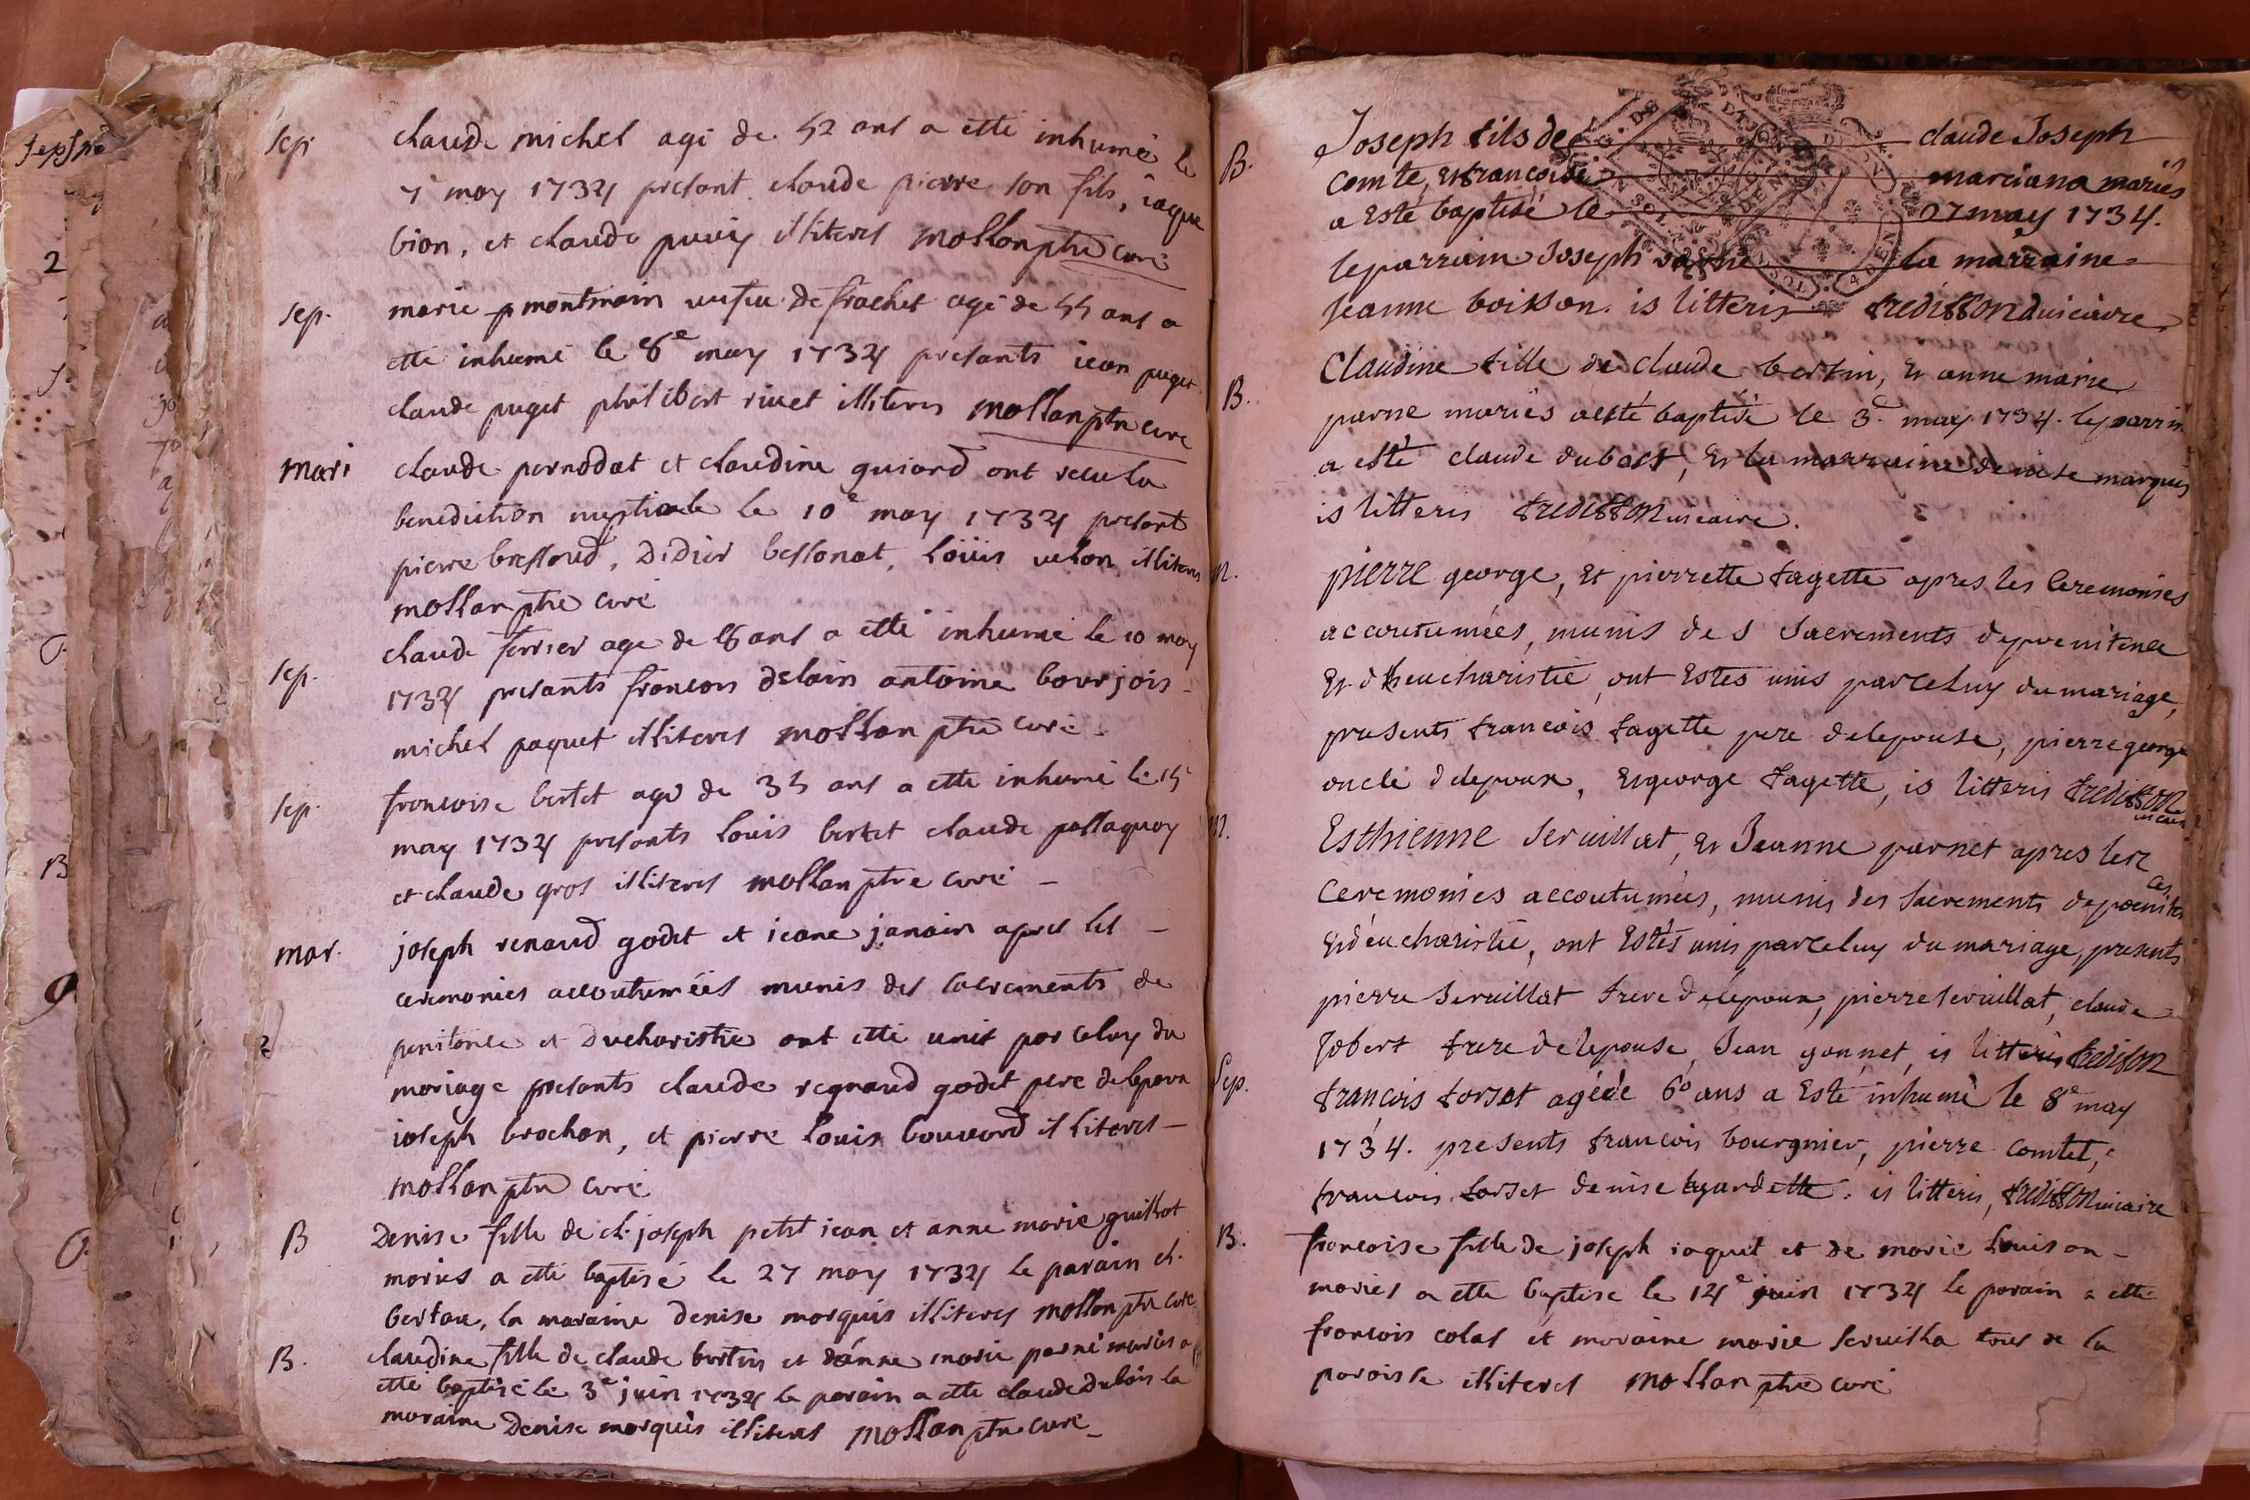 sep
claude michel agé de 52 ans a etté inhumé le
7e may 1734 presant claude pierre son fils, iaque
bion, et claude puvis illiteres mollan ptre curé
sep.
marie montmain veufve de frachet agé de 55 ans a
etté inhumé le 8e may 1734 presants iean puget
claude puget philibert rivet illiteres mollan ptre curé
mari
claude pernodat et claudine guiard ont receu la
benediction nuptiale le 10e may 1734 presant
pierre bressoud, Didier bessonat, loüis velon illiteres
mollan ptre curé
sep.
claude ferrier age de 8 ans a etté inhumé le 10 may
1734 presants francois delain antoine bourjois
michel paquet illiteres mollan ptre curé
sep.
francoise bertet agé de 35 ans a ette inhumé le 15
may 1734 presants louis bertet claude pallaquoy
et claude gros illiteres mollan ptre curé
mar.
joseph renaud godet et ieane janain apres les
ceremonies accoutumées munis des sacrements de
penitence et ducharistie ont etté unit par celuy du
mariage presants claude regnaud godet pere de lepoux
ioseph brochon, et pierre louis bouvard illiteres
mollan ptre curé
B
Denise fille de cl. joseph petit iean et anne marie guillot
mariés a etté baptisé le 27 may 1734 le parain cl.
bertou, la maraine denise morquis illiteres mollan ptre curé
B.
claudine fille de claude bertin et danne marie parné mariés a
etté baptisé le 3e juin 1734 le parain a ette claude dubois la
maraine Denise morquis illiteres mollan ptre curé
B.
Joseph fils de claude Joseph
comte, et francoise marciana mariés
a esté baptisé le 27 may 1734.
le parrain Joseph la marraine
Jeanne boisson. is litteris fredisson vicaire
B.
Claudine fille de claude bertin, et anne marie
parne mariés a esté baptisé le 3e may 1734. le parrin
a esté claude dubost, et la marraine denise marquis
is litteris fredisson vicaire.
m.
pierre george, et pierrette fagette apres les ceremonies
accoutumées, munis des sacrements de poenitence
et dheucharistie, ont estés unis par celuy du mariage,
presents francois fagette pere de lepouse, pierre george
oncle de lepoux, et george fagette, is litteris fredisson
vicaire
m.
Esthienne servillat, et Jeanne parnet apres les
ceremonies accoutumées, munis des sacrements de poeniten
ces
et déucharistie, ont estés unis par celuy du mariage, presents
pierre servillat frere de lepoux, pierre servillat, claude
Jobert frere de lepouse, Jean gonnet, is litteris fredison
Sep.
françois forset agé de 60 ans a esté inhumé le 8e may
1734. presents francois bourgnier, pierre comtet,
francois forset denise. is litteris, fredisson vicaire
B.
francoise fille de joseph iaquet et de marie louison
mariés a ette baptisé le 14e juin 1734 le parain a etté
francois colas et maraine marie servilla tous de la
paroisse illiteres mollan ptre curé